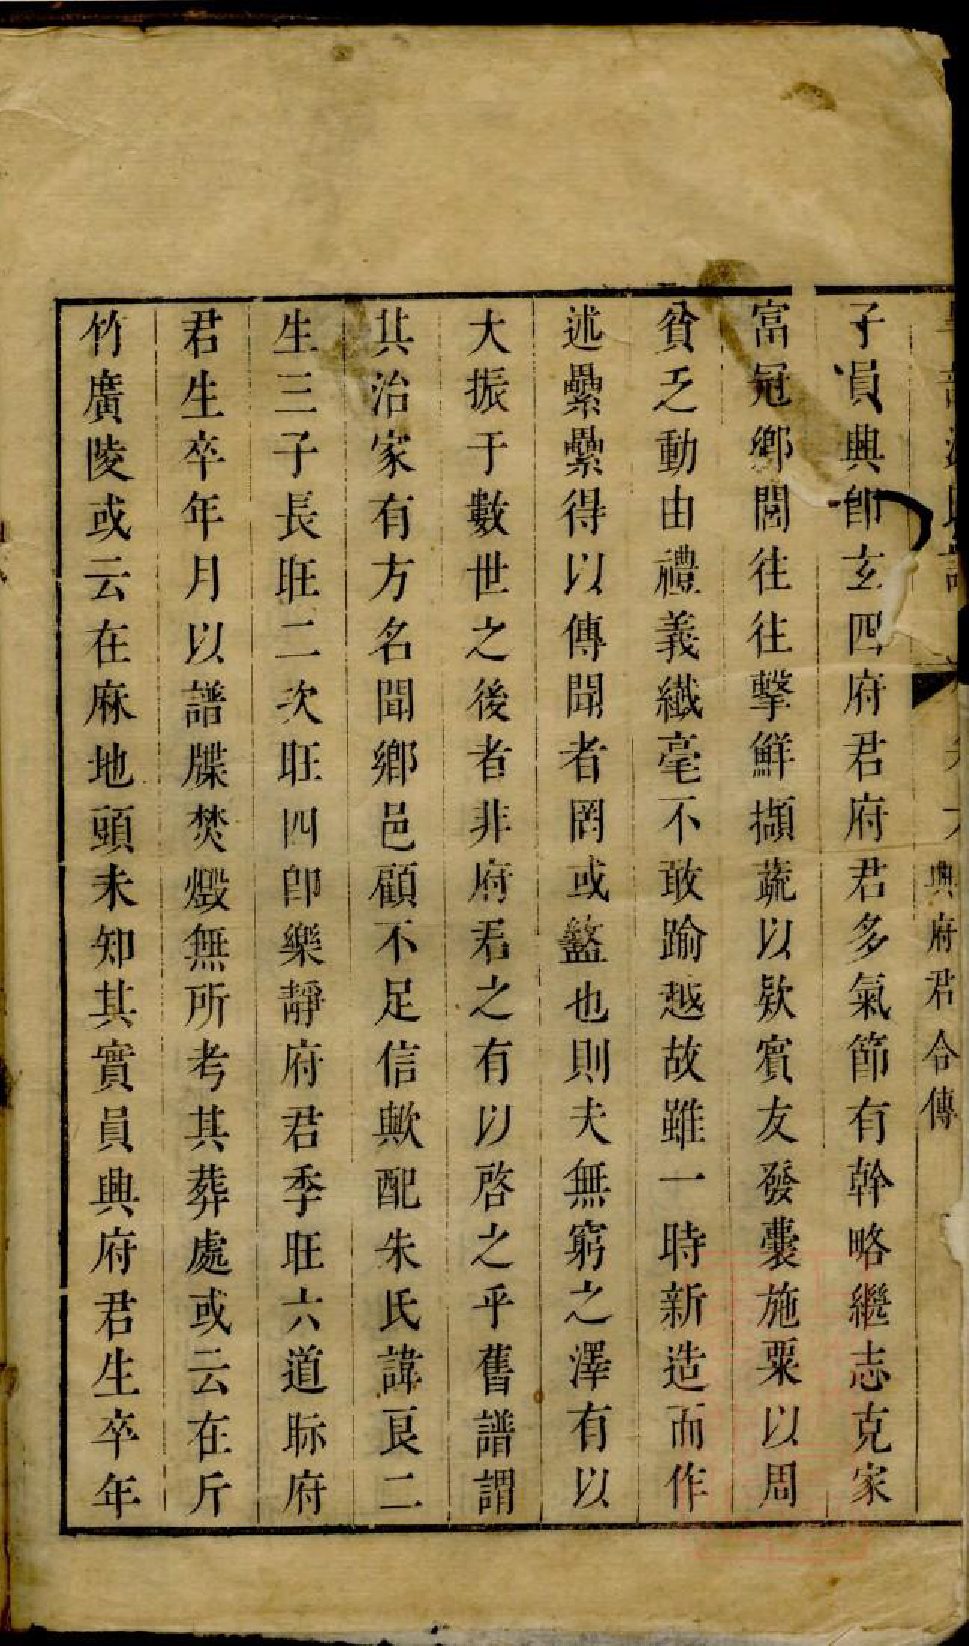 興府君合傳
子員興卽玄四府君府君多氣節有幹略繼志克家
富冠鄉閭往往擊鮮擷蔬以欵賓友發囊施粟以周
貧乏動由禮義纖毫不敢踰越故雖一時新造而作
述纍纍得以傳聞者罔或盭也則夫無窮之澤有以
大振于數世之後者非府君之有以啓之乎舊譜謂
其治家有方名聞鄉邑顧不足信歟配朱氏諱良二
生三子長旺二次旺四卽樂靜府君季旺六道际府
君生卒年月以譜牒焚燬無所考其葬處或云在斤
竹廣陵或云在麻地頭未知其實員興府君生卒年